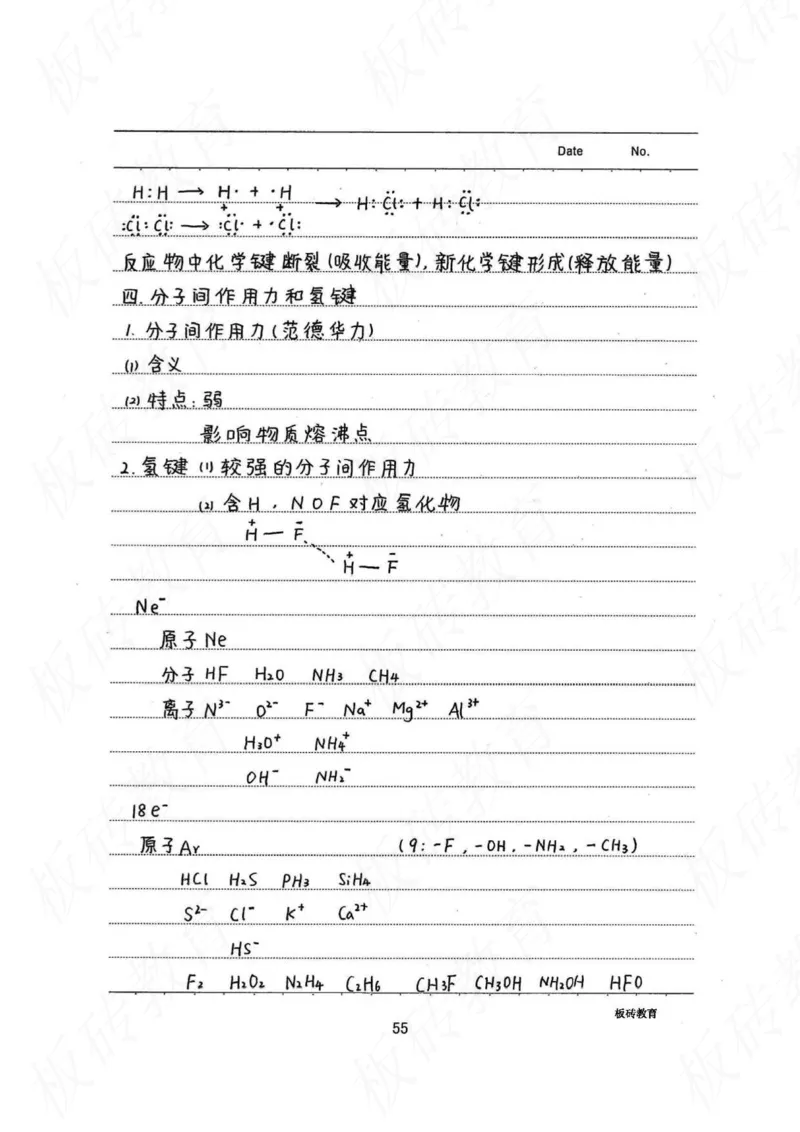 Date No.
H:H → H· + ·H
+ +
→ H:C̈l: + H:C̈l:
:C̈l:C̈l: → :C̈l· + ·C̈l:
反应物中化学键断裂(吸收能量),新化学键形成(释放能量)
四.分子间作用力和氢键
1. 分子间作用力(范德华力)
(1) 含义
(2) 特点:弱
影响物质熔沸点
2.氢键 (1) 较强的分子间作用力
(2) 含H , N O F 对应氢化物
+ -
H — F
+ -
H — F
Ne⁻
原子 Ne
分子 HF H₂O NH₃ CH₄
离子 N³⁻ O²⁻ F⁻ Na⁺ Mg²⁺ Al³⁺
H₃O⁺ NH₄⁺
OH⁻ NH₂⁻
18e⁻
原子 Ar (9: -F , -OH , -NH₂ , -CH₃)
HCl H₂S PH₃ SiH₄
S²⁻ Cl⁻ K⁺ Ca²⁺
HS⁻
F₂ H₂O₂ N₂H₄ C₂H₆ CH₃F CH₃OH NH₂OH HFO
板砖教育
55